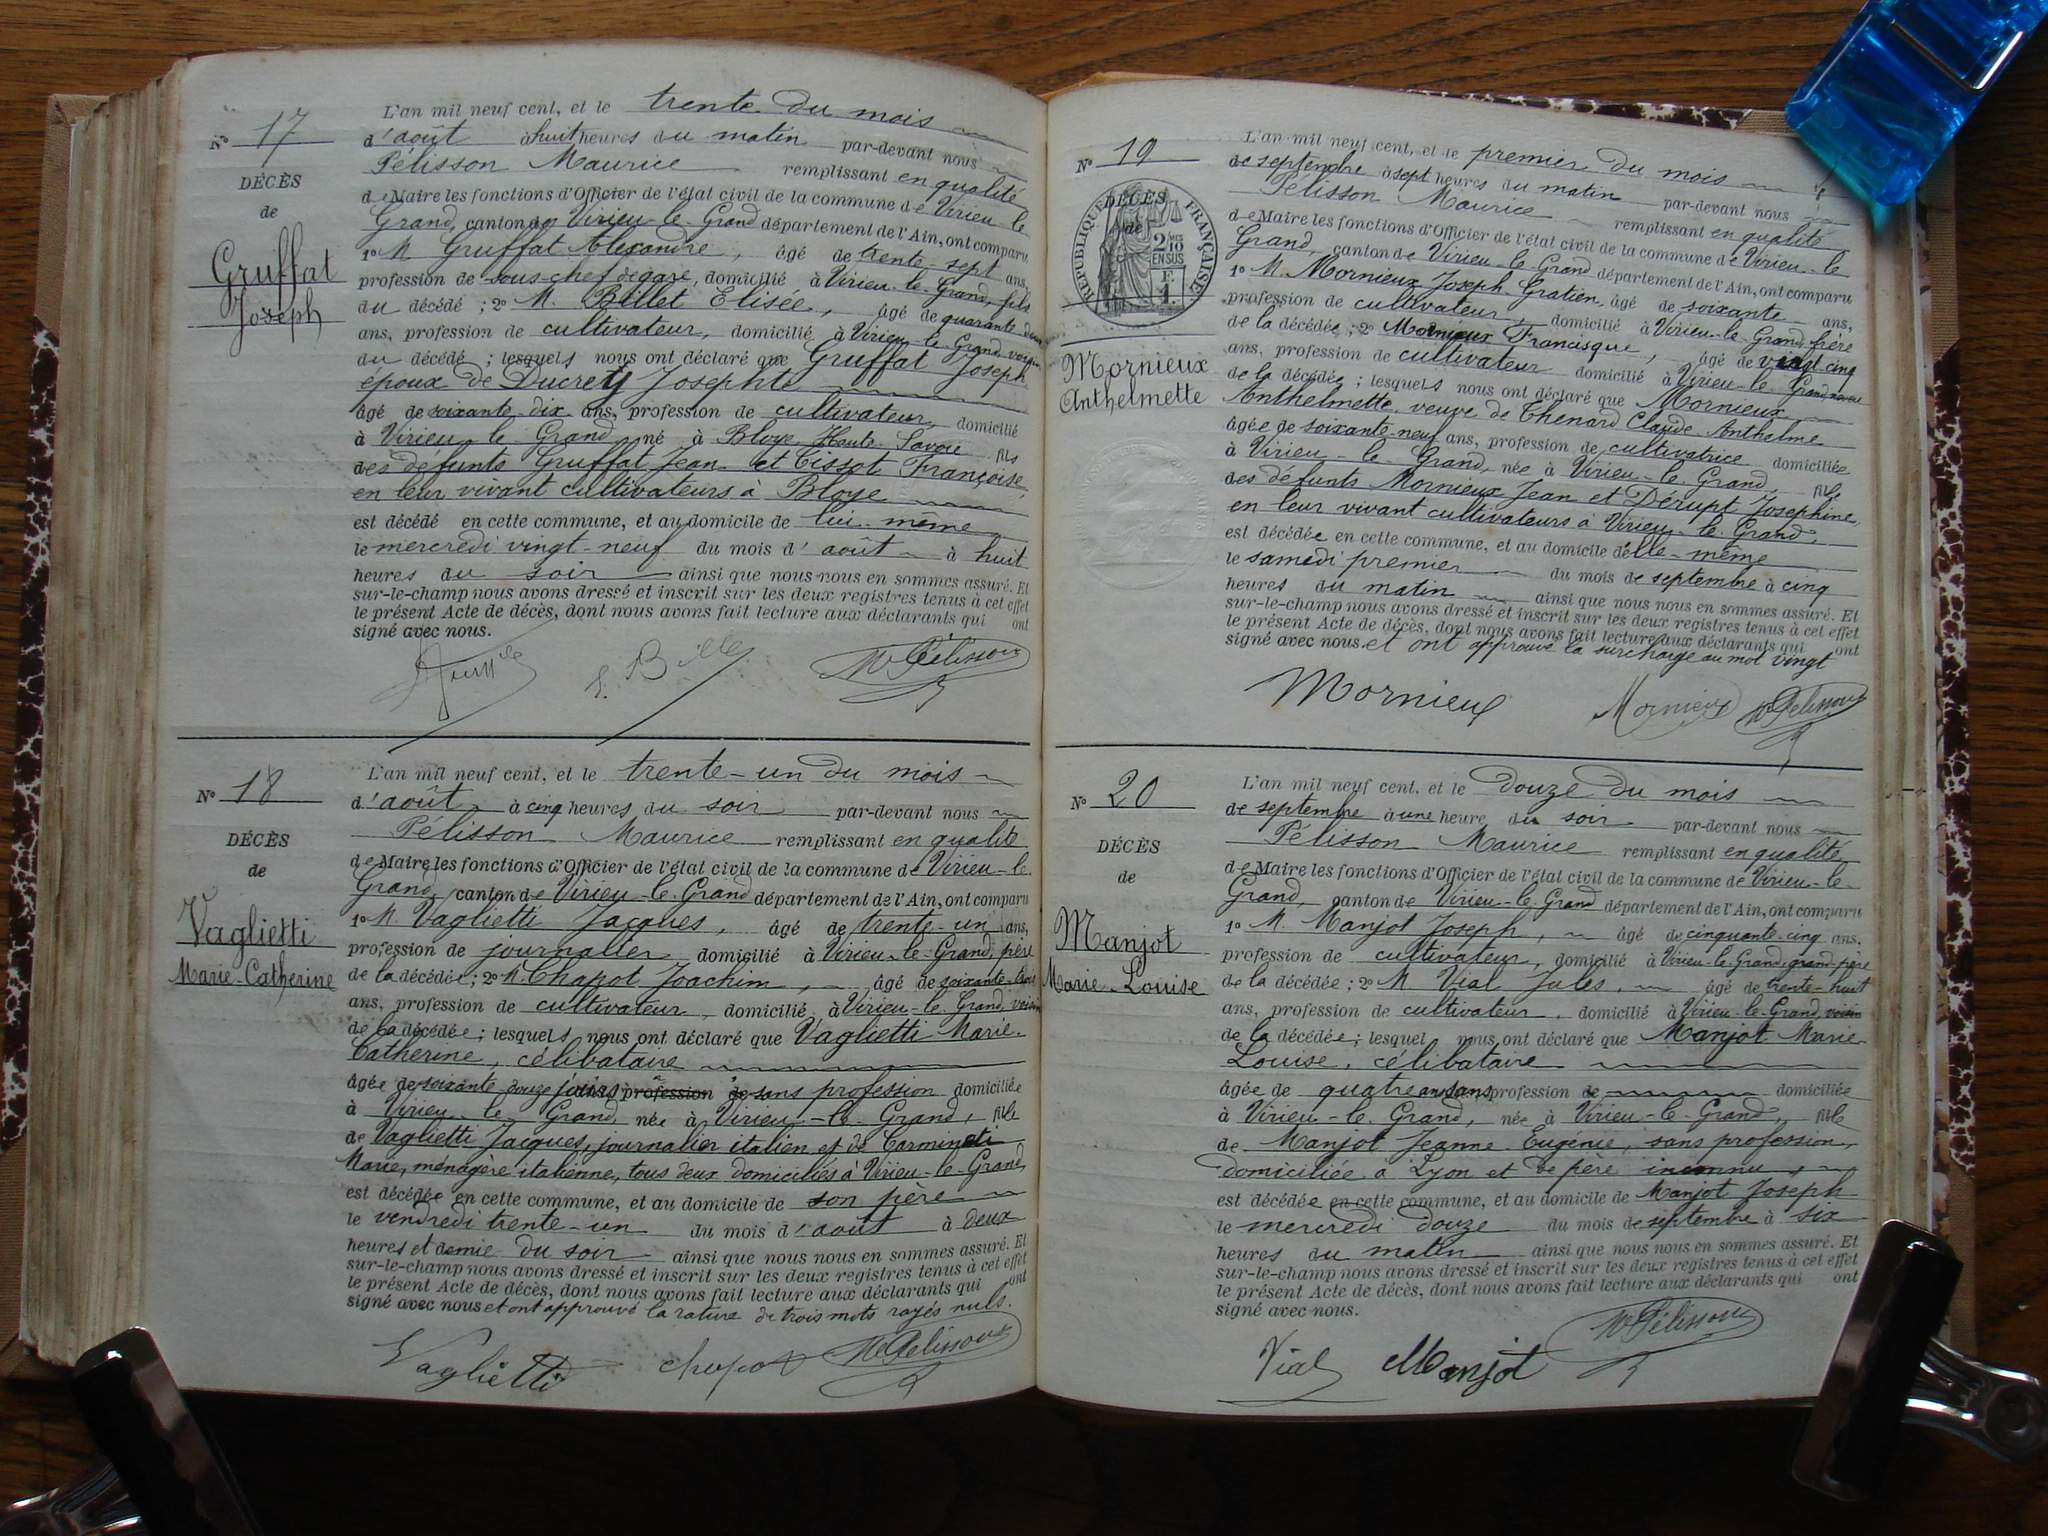 N° 17
DÉCÈS
de
Gruffat
Joseph
L'an mil neuf cent, et le trente du mois
d'août à huit heures du matin par-devant nous
Pélisson Maurice remplissant en qualité
de Maire les fonctions d'Officier de l'état civil de la commune de Virieu-le
Grand, canton de Virieu-le-Grand département de l'Ain, ont comparu
1° M Gruffat Alexandre, âgé de trente-sept ans,
profession de sous-chef de gare, domicilié à Virieu-le-Grand, fils
du décédé ; 2° M. Billet Elisée, âgé de quarante deux
ans, profession de cultivateur, domicilié à Virieu-le-Grand, voisin
du décédé ; lesquels nous ont déclaré que Gruffat Joseph
époux de Ducrety Josephte
âgé de soixante-dix ans, profession de cultivateur, domicilié
à Virieu-le-Grand, né à Bloye Haute-Savoie fils
des défunts Gruffat Jean et Tissot Françoise,
en leur vivant cultivateurs à Bloye
est décédé en cette commune, et au domicile de lui-même
le mercredi vingt-neuf du mois d'août à huit
heures du soir ainsi que nous nous en sommes assuré. Et
sur-le-champ nous avons dressé et inscrit sur les deux registres tenus à cet effet
le présent Acte de décès, dont nous avons fait lecture aux déclarants qui ont
signé avec nous.
E. Billet M Pélisson
N° 18
DÉCÈS
de
Vaglietti
Marie-Catherine
L'an mil neuf cent, et le trente-un du mois
d'août à cinq heures du soir par-devant nous
Pélisson Maurice remplissant en qualité
de Maire les fonctions d'Officier de l'état civil de la commune de Virieu-le
Grand, canton de Virieu-le-Grand département de l'Ain, ont comparu
1° M. Vaglietti Jacques, âgé de trente-un ans,
profession de journalier domicilié à Virieu-le-Grand, père
de la décédée ; 2° M. Chapot Joachim, âgé de soixante-trois
ans, profession de cultivateur, domicilié à Virieu-le-Grand, voisin
de la décédée ; lesquels nous ont déclaré que Vaglietti Marie-
Catherine, célibataire
âgée de soixante-douze jours, profession de sans profession domiciliée
à Virieu-le-Grand, née à Virieu-le-Grand, fille
de Vaglietti Jacques, journalier italien et de Carminati
Marie, ménagère italienne, tous deux domiciliés à Virieu-le-Grand,
est décédée en cette commune, et au domicile de son père
le vendredi trente-un du mois d'août à deux
heures et demie du soir ainsi que nous nous en sommes assuré. Et
sur-le-champ nous avons dressé et inscrit sur les deux registres tenus à cet effet
le présent Acte de décès, dont nous avons fait lecture aux déclarants qui ont
signé avec nous et ont approuvé la rature de trois mots rayés nuls.
Vaglietti chapot M Pélisson
N° 19
DÉCÈS
de
RÉPUBLIQUE FRANÇAISE
2/10
EN SUS
F.
1.
Mornieux
Anthelmette
L'an mil neuf cent, et le premier du mois
de septembre à sept heures du matin par-devant nous
Pélisson Maurice remplissant en qualité
de Maire les fonctions d'Officier de l'état civil de la commune de Virieu-le
Grand, canton de Virieu-le-Grand département de l'Ain, ont comparu
1° M. Mornieux Joseph-Gratien, âgé de soixante ans,
profession de cultivateur, domicilié à Virieu-le-Grand, frère
de la décédée ; 2° Mornieux Francisque, âgé de vingt cinq
ans, profession de cultivateur domicilié à Virieu-le-Grand, neveu
de la décédée ; lesquels nous ont déclaré que Mornieux
Anthelmette veuve de Thenard Claude Anthelme
âgée de soixante-neuf ans, profession de cultivatrice domiciliée
à Virieu-le-Grand, née à Virieu-le-Grand, fille
des défunts Mornieux Jean et Dérupt Josephine,
en leur vivant cultivateurs à Virieu-le-Grand,
est décédée en cette commune, et au domicile d'elle-même
le samedi premier du mois de septembre à cinq
heures du matin ainsi que nous nous en sommes assuré. Et
sur-le-champ nous avons dressé et inscrit sur les deux registres tenus à cet effet
le présent Acte de décès, dont nous avons fait lecture aux déclarants qui ont
signé avec nous et ont approuvé la surcharge au mot vingt
Mornieux Mornieux M Pélisson
N° 20
DÉCÈS
de
Manjot
Marie-Louise
L'an mil neuf cent, et le douze du mois
de septembre à une heure du soir par-devant nous
Pélisson Maurice remplissant en qualité
de Maire les fonctions d'Officier de l'état civil de la commune de Virieu-le-
Grand, canton de Virieu-le-Grand département de l'Ain, ont comparu
1° M. Manjot Joseph, âgé de cinquante-cinq ans,
profession de cultivateur, domicilié à Virieu-le-Grand, grand-père
de la décédée ; 2° M Vial Jules, âgé de trente-huit
ans, profession de cultivateur, domicilié à Virieu-le-Grand, voisin
de la décédée ; lesquel nous ont déclaré que Manjot Marie-
Louise, célibataire
âgée de quatre ans sans profession de domiciliée
à Virieu-le-Grand, née à Virieu-le-Grand, fille
de Manjot Jeanne Eugénie, sans profession,
domiciliée à Lyon et de père inconnu,
est décédée en cette commune, et au domicile de Manjot Joseph
le mercredi douze du mois de septembre à six
heures du matin ainsi que nous nous en sommes assuré. Et
sur-le-champ nous avons dressé et inscrit sur les deux registres tenus à cet effet
le présent Acte de décès, dont nous avons fait lecture aux déclarants qui ont
signé avec nous.
Vial Manjot M Pélisson